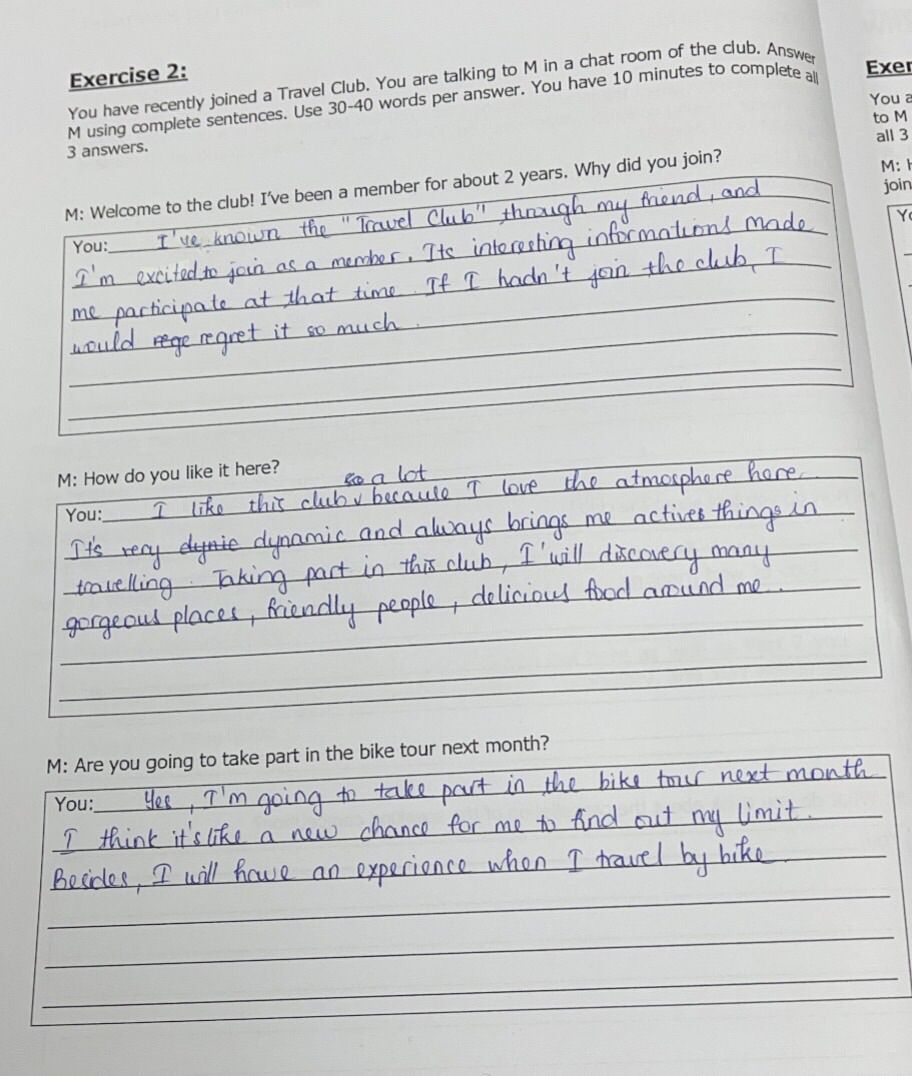 Exercise 2:
You have recently joined a Travel Club. You are talking to M in a chat room of the club. Answer
M using complete sentences. Use 30-40 words per answer. You have 10 minutes to complete all
3 answers.
M: Welcome to the club! I've been a member for about 2 years. Why did you join?
You: I've known the "Travel Club" through my friend, and
I'm excited to join as a member. Its interesting informations made
me participate at that time. If I hadn't join the club, I
would rege regret it so much.
M: How do you like it here?
so a lot
You: I like this club v because I love the atmosphere here.
It's very dynic dynamic and always brings me actives things in
travelling. Taking part in this club, I'will discovery many
gorgeous places, friendly people, delicious food around me.
M: Are you going to take part in the bike tour next month?
You: Yes, I'm going to take part in the bike tour next month
I think it's like a new chance for me to find out my limit.
Besides, I will have an experience when I travel by bike.
Exer
You a
to M
all 3
M: H
join
Yo